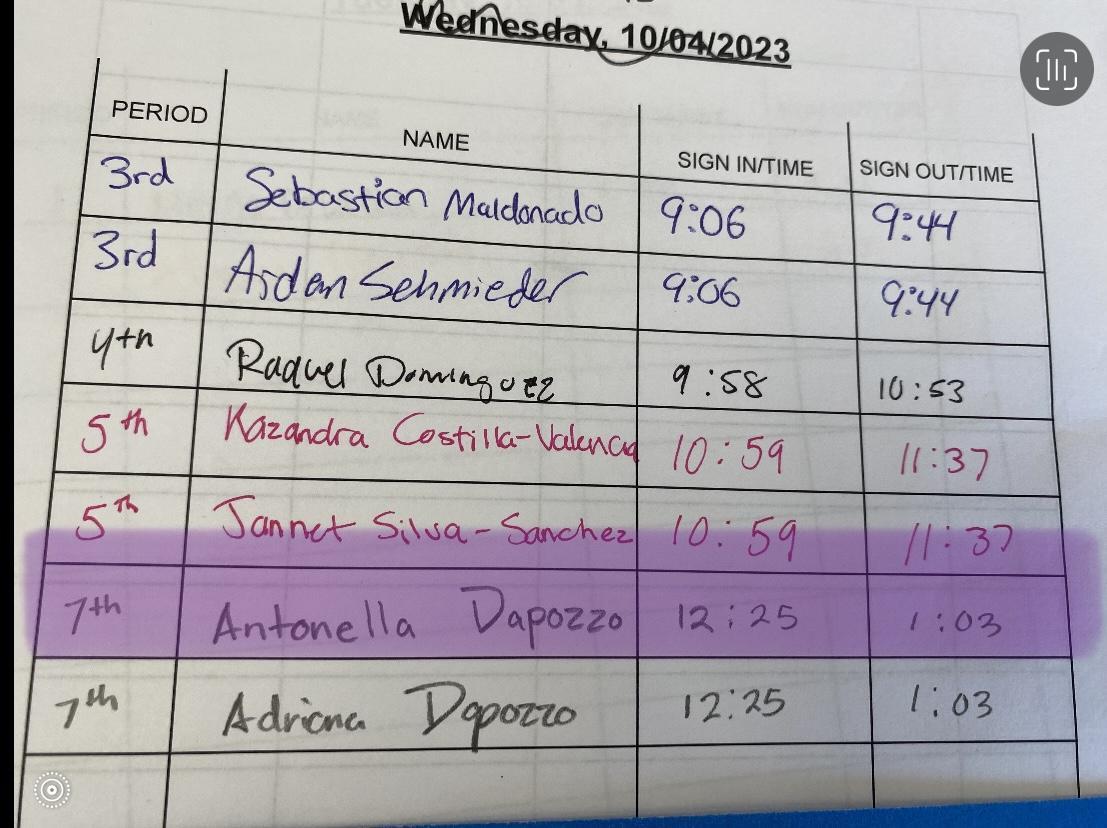 Wednesday, 10/04/2023
PERIOD NAME SIGN IN/TIME SIGN OUT/TIME
3rd Sebastian Maldonado 9:06 9:44
3rd Aidan Schmieder 9:06 9:44
4th Raquel Dominguez 9:58 10:53
5th Kazandra Costilla-Valencia 10:59 11:37
5th Jannet Silva-Sanchez 10:59 11:37
7th Antonella Dapozzo 12:25 1:03
7th Adriana Dapozzo 12:25 1:03